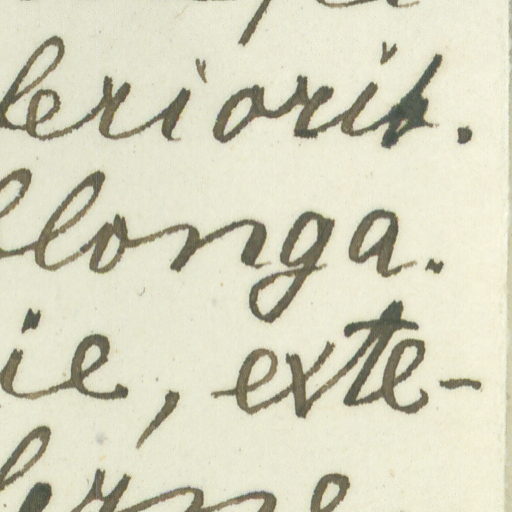 lerioris.
llonga.
ie, exte-